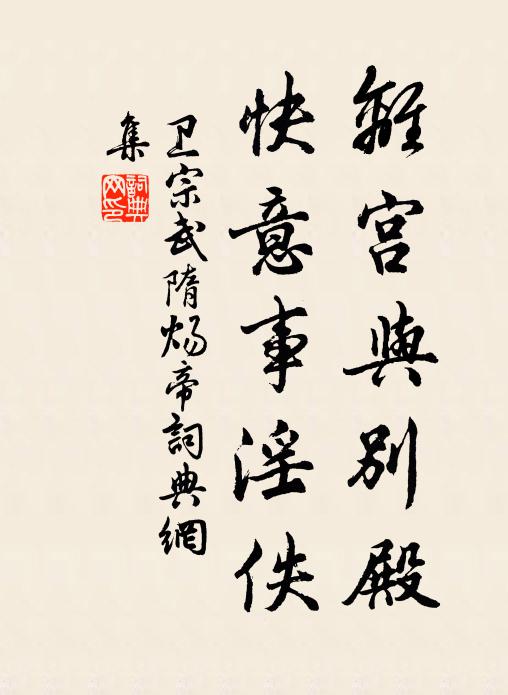 離宮與別殿
快意事淫佚
卫宗武隋炀帝詞典網
集
詞典
网印